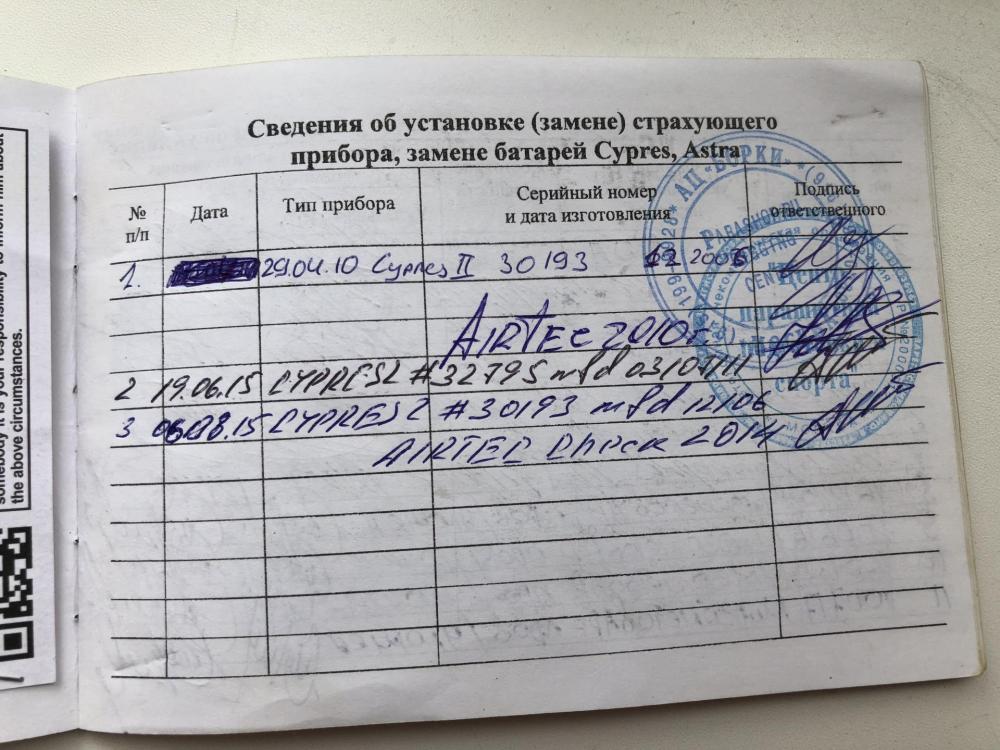 somebody it is your responsibility to inform him about
the above circumstances.
Сведения об установке (замене) страхующего
прибора, замене батарей Cypres, Astra
№ п/п Дата Тип прибора Серийный номер и дата изготовления Подпись ответственного
1. 29.04.10 Cypres II 30193 2006
AIRTEC 2010г.
2 19.06.15 CYPRES2 #32795 mfd 03/04/11
3 06.08.15 CYPRES2 #30193 mfd 12/06
AIRTEC Check 2014
АЦ «БОРКИ»
PARASHOP.RU
CENTRE
спорта"